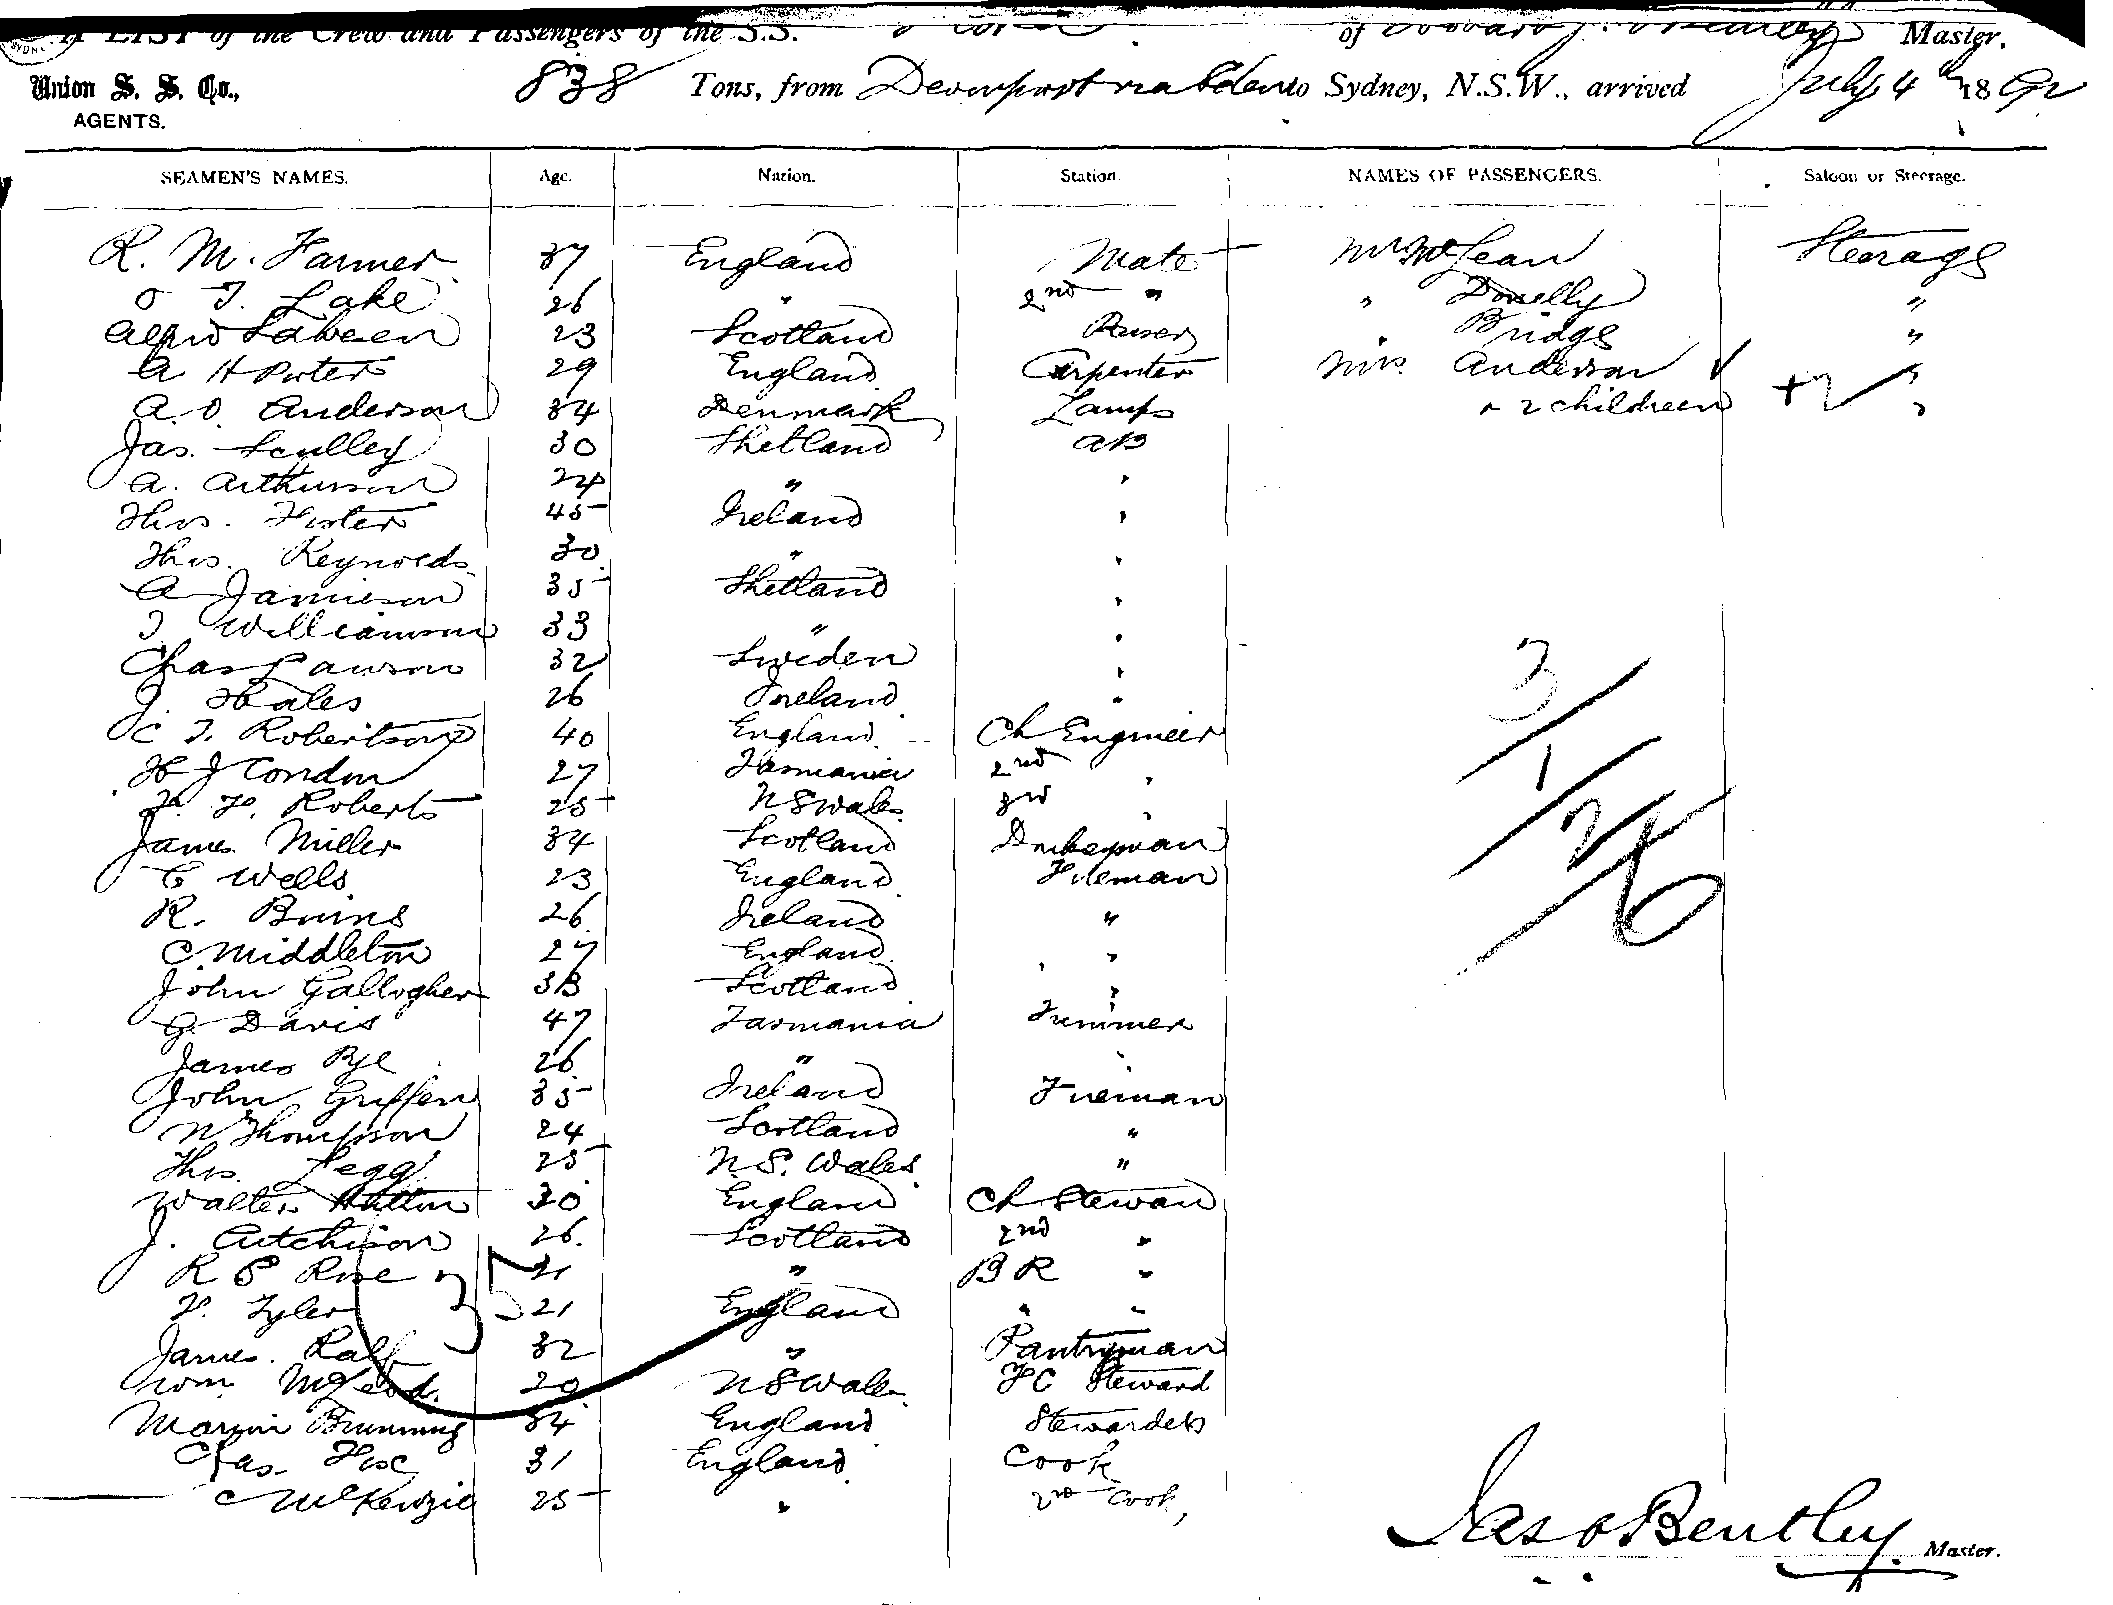 A LIST of the Crew and Passengers of the S.S. of Master.
Union S. S. Co., 838 Tons, from Devonport via Eden to Sydney, N.S.W., arrived July 4th 1892
AGENTS.
SEAMEN'S NAMES. Age. Nation. Station. NAMES OF PASSENGERS. Saloon or Steerage.
R. M. Farmer 37 England Mate Mr McLean Steerage
T. Lake 26 " 2nd " " Donelly "
23 Scotland Purser " Bridge "
A H Porter 29 England Carpenter Mrs Anderson "
A. O. Anderson 34 Denmark Lamps + 2 children + 2 "
Jas. Sculley 30 Shetland AB
A. Arthurson 24 " "
Thos. Foster 45 Ireland "
Thos. Reynolds 30 " "
A Jamieson 35 Shetland "
J Williamson 33 " "
Chas Lawson 32 Sweden "
J. Hales 26 Ireland "
C J. Robertson 40 England Ch Engineer
H J Condon 27 Tasmania 2nd "
F. F. Roberts 25 N S Wales 3rd "
James Miller 34 Scotland Donkeyman
C Wells 23 England Fireman
R. Burns 26 Ireland "
C. Middleton 27 England "
John Gallogher 33 Scotland "
G. Davis 47 Tasmania Trimmer
James Bye 26 " "
John Griffen 35 Ireland Fireman
W Thompson 24 Scotland "
Thos. Legg 25 N.S. Wales "
Walter Hutton 30 England Ch Steward
J. Aitchison 26 Scotland 2nd "
R S Rose 21 " B R "
F. Tyler 21 England " "
James. Ralf 32 " Pantryman
Wm McLeod 20 N S Wales F C Steward
Brunning 34 England Stewardess
Chas. 31 England Cook
C McKenzie 25 " 2nd Cook
3/1/2/6
35
Jas Bentley Master.